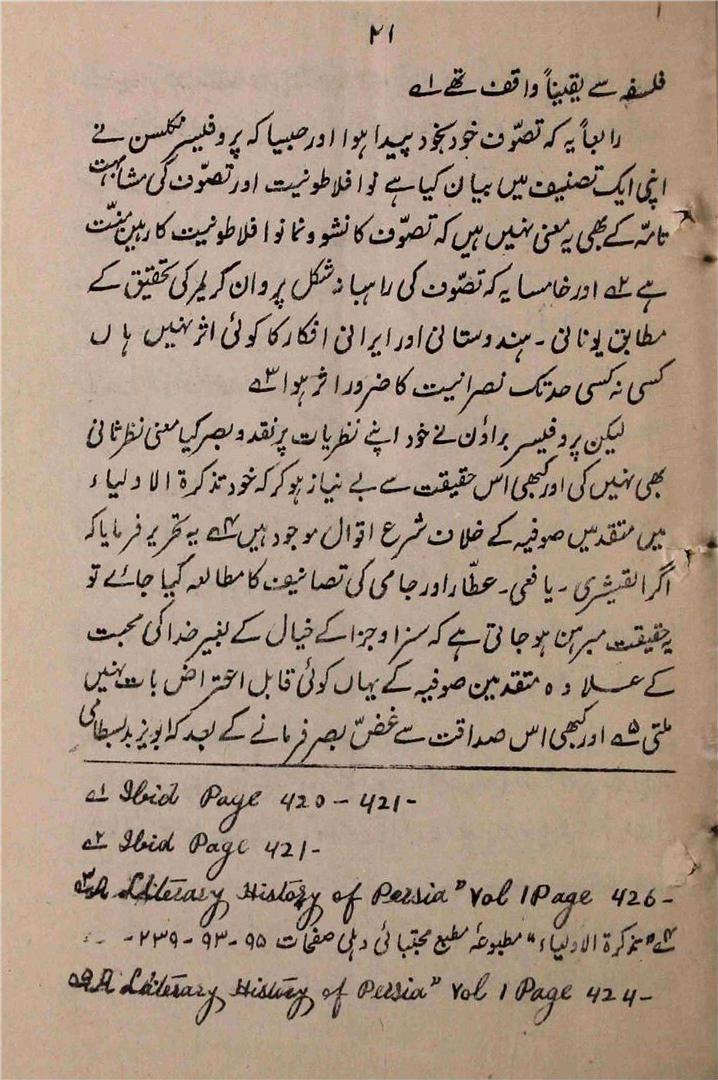 ۲۱
فلسفہ سے یقیناً واقف تھے ؎۱
رابعاً یہ کہ تصوّف خود بخود پیدا ہوا اور جیسا کہ پروفیسر نکلسن نے
اپنی ایک تصنیف میں بیان کیا ہے نو افلاطونیت اور تصوّف کی مشابہت
تامّہ کے بھی یہ معنی نہیں ہیں کہ تصوّف کا نشو و نما نو افلاطونیت کا رہین منّت
ہے ؎۲ اور خامسا یہ کہ تصوّف کی راہبانہ شکل پر وان کریمر کی تحقیق کے
مطابق یونانی ۔ ہندوستانی اور ایرانی افکار کا کوئی اثر نہیں ہاں
کسی نہ کسی حد تک نصرانیت کا ضرور اثر ہوا ؎۳
لیکن پروفیسر براؤن نے خود اپنے نظریات پر نقد و بصر کیا معنی نظر ثانی
بھی نہیں کی اور کبھی اس حقیقت سے بے نیاز ہو کر کہ خود تذکرۃ الاولیاء
میں متقدمیں صوفیہ کے خلاف شرع اقوال موجود ہیں ؎۴ یہ تحریر فرمایا کہ
اگر القیشری ۔ یافعی ۔ عطّار اور جامی کی تصانیف کا مطالعہ کیا جائے تو
یہ حقیقت مبرہن ہو جاتی ہے کہ سزا و جزا کے خیال کے بغیر خدا کی محبت
کے علاوہ متقدمین صوفیہ کے یہاں کوئی قابل اعتراض بات نہیں
ملتی ؎۵ اور کبھی اس صداقت سے غضّ بصر فرمانے کے بعد کہ ابو یزید بسطامی
؎۱ Ibid Page 420-421-
؎۲ Ibid Page 421-
؎۳ A Literary History of Persia" Vol 1 Page 426-
؎۴ "تذکرۃ الاولیاء" مطبوعہ مطبع مجتبائی دہلی صفحات ۹۵ - ۹۳ - ۲۳۹ -
؎۵ A Literary History of Persia" Vol 1 Page 424-